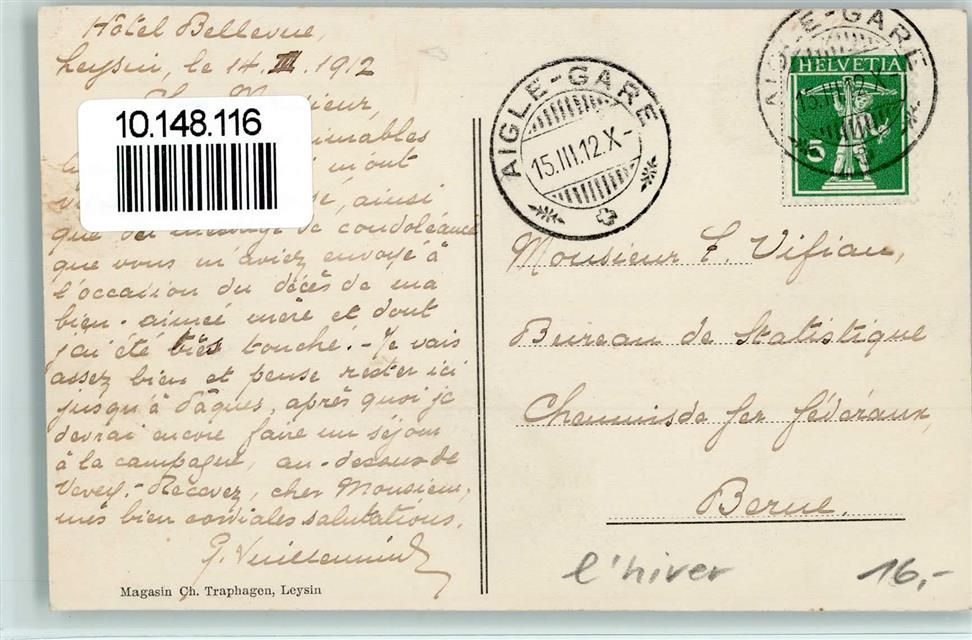 Hôtel Bellevue,
Leysin, le 14. III. 1912
Monsieur,
10.148.116
aimables
m'ont
ainsi
que de condoléance
que vous m'aviez envoyé à
l'occasion du décès de ma
bien-aimée mère et dont
j'ai été très touché. - Je vais
assez bien et pense rester ici
jusqu'à Pâques, après quoi je
devrai encore faire un séjour
à la campagne, au-dessus de
Vevey. - Recevez, cher Monsieur,
mes bien cordiales salutations.
G. Vuilleumier
Magasin Ch. Traphagen, Leysin
AIGLE-GARE
15.III.12.X-
AIGLE-GARE
15.III.12.X-
HELVETIA
5
Monsieur F. Vifian,
Bureau de Statistique
Chemins de fer fédéraux,
Berne.
l'hiver
16,-